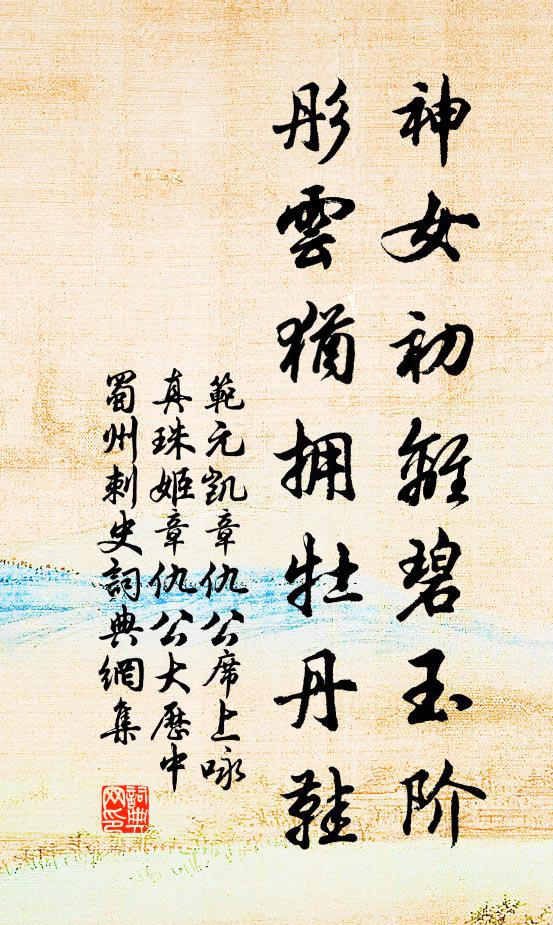 神女初離碧玉阶
彤雲猶拥牡丹鞋
範元凱章仇公席上咏
真珠姬章仇公大歷中
蜀州刺史詞典網集
詞典网印